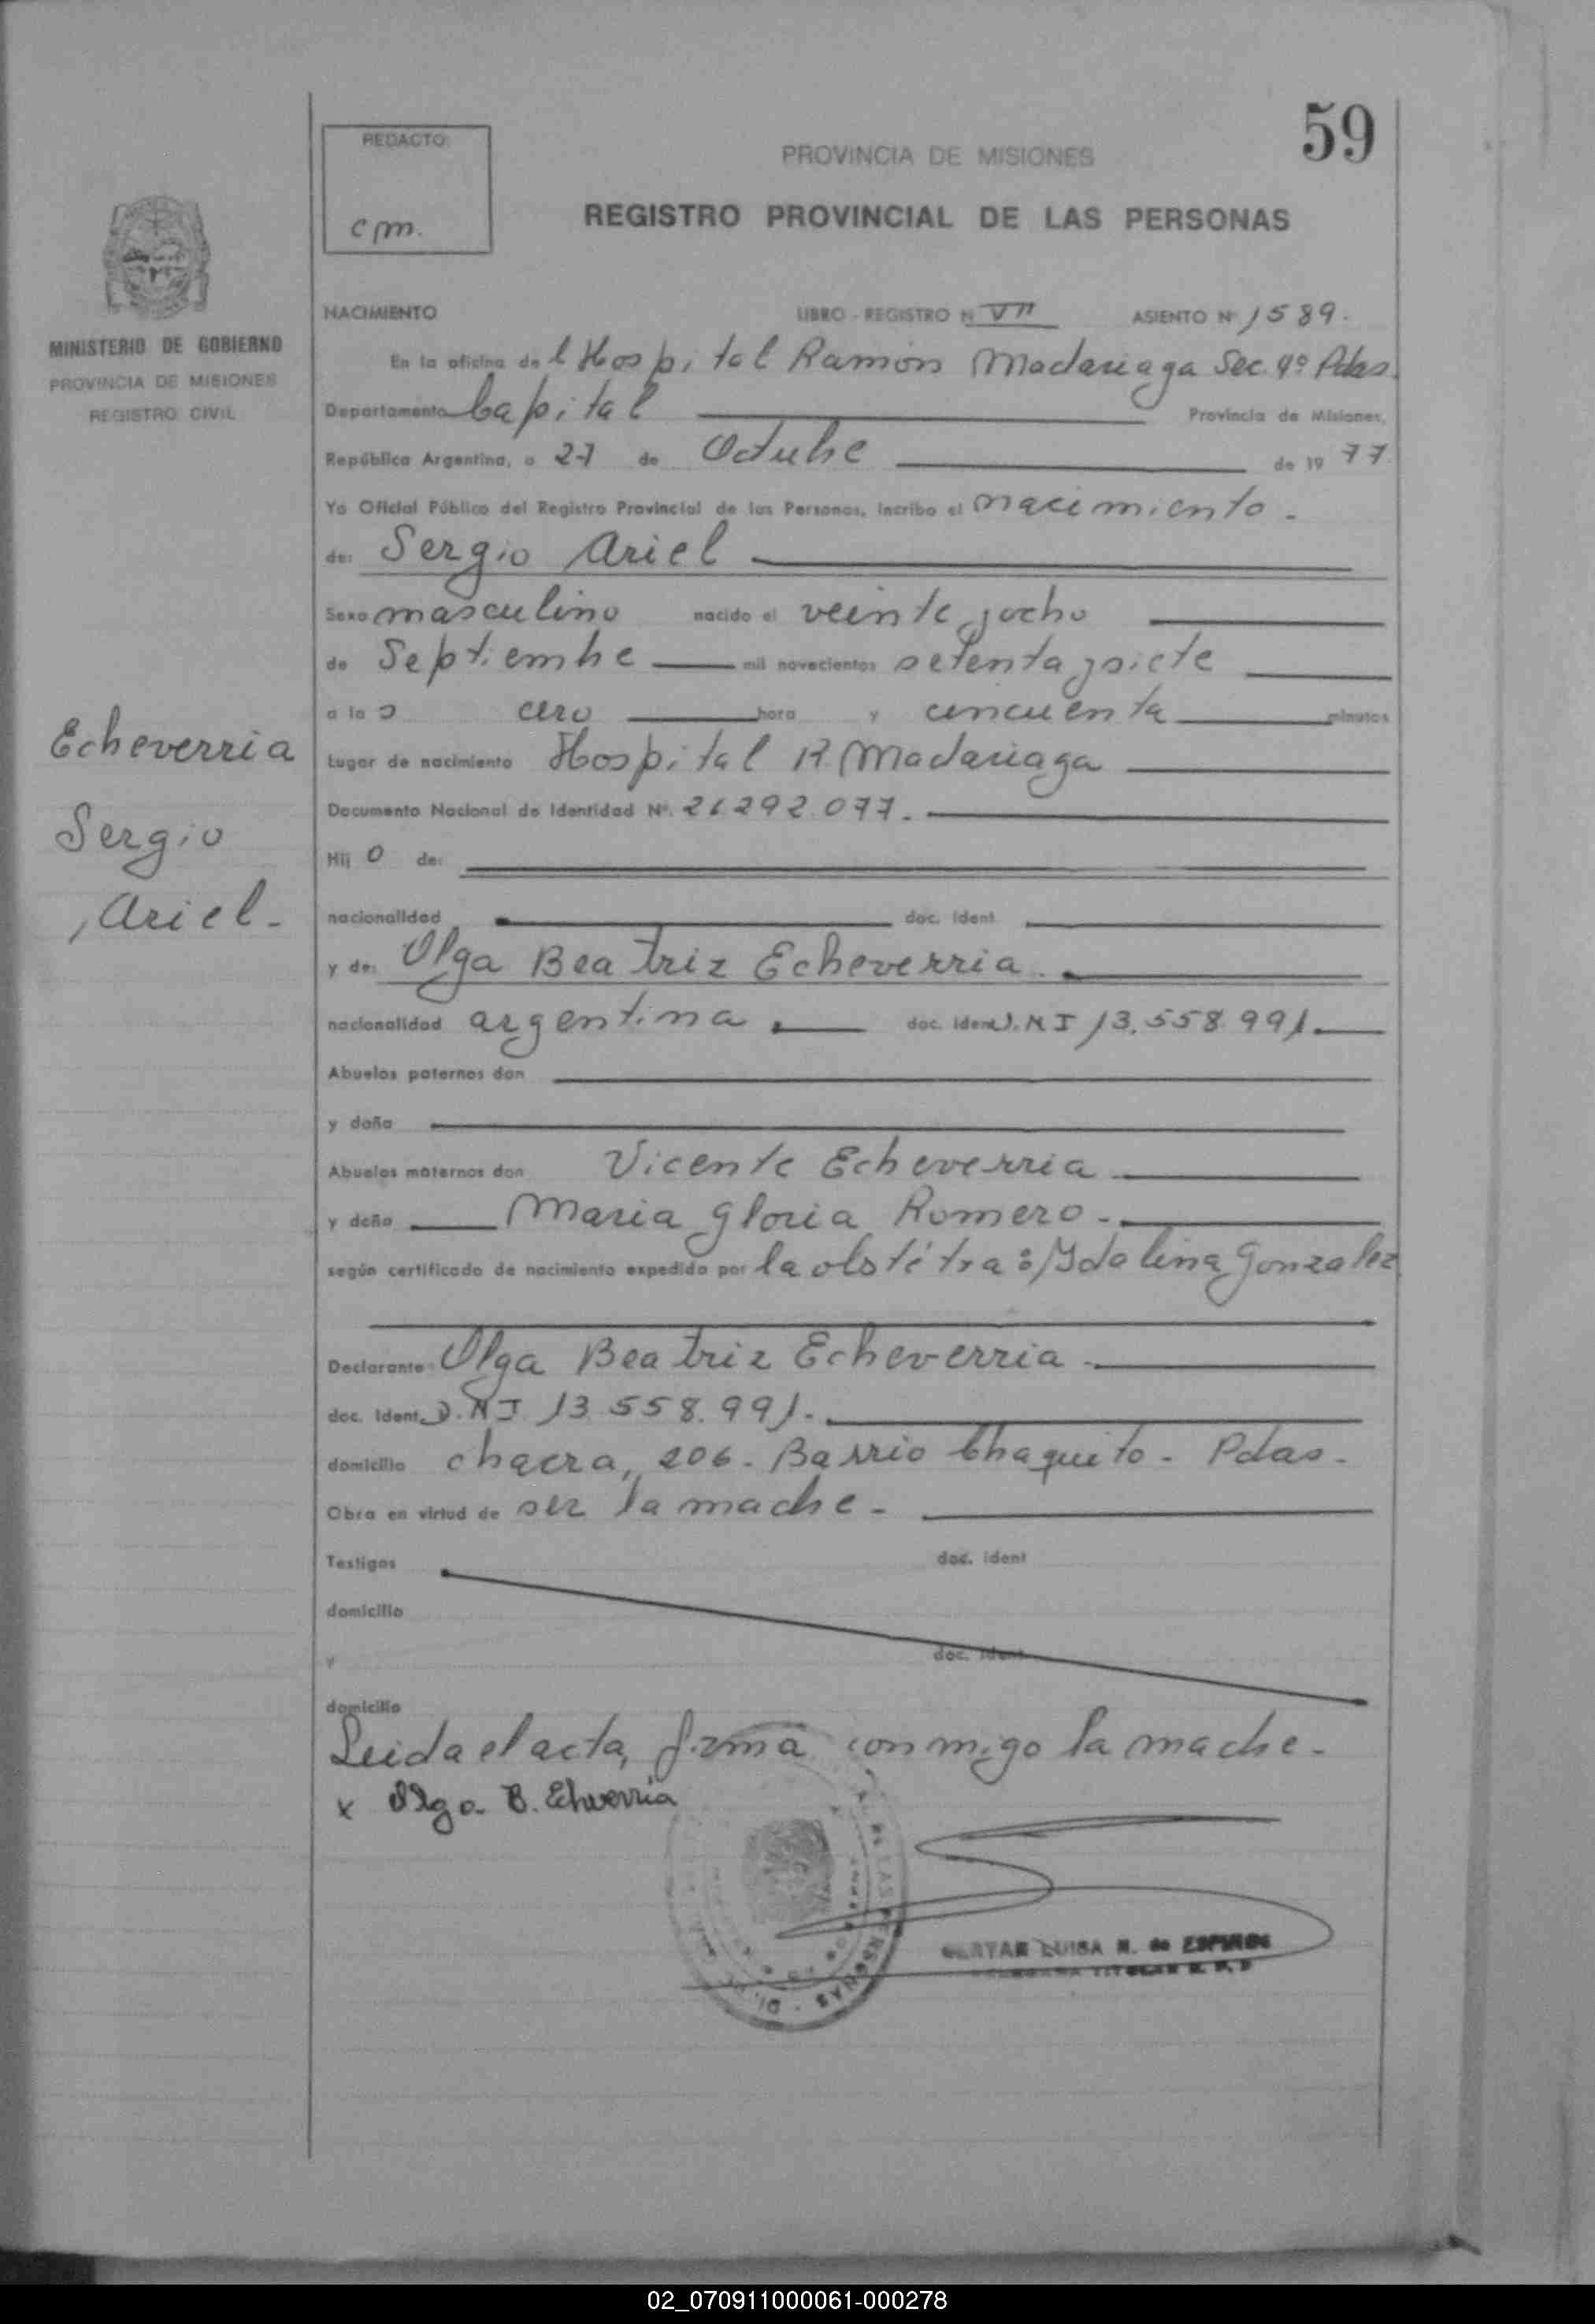 59
REDACTO:
cm.
PROVINCIA DE MISIONES
REGISTRO PROVINCIAL DE LAS PERSONAS
MINISTERIO DE GOBIERNO
PROVINCIA DE MISIONES
REGISTRO CIVIL
NACIMIENTO LIBRO - REGISTRO Nº VII ASIENTO Nº 1589.
En la oficina del Hospital Ramón Madariaga Sec. 4º Pdas.
Departamento Capital Provincia de Misiones,
República Argentina, a 27 de Octubre de 1977.
Yo Oficial Público del Registro Provincial de las Personas, incribo el nacimiento.
de: Sergio Ariel
Sexo masculino nacido el veinte y ocho
de Septiembre mil novecientos setenta y siete
a las cero hora y cincuenta minutos
Echeverria
Sergio
Ariel.
Lugar de nacimiento Hospital R. Madariaga
Documento Nacional de Identidad Nº. 26.292.077.
Hij o de:
nacionalidad doc. ident.
y de: Olga Beatriz Echeverria.
nacionalidad argentina. doc. ident D.N.I 13.558.991.
Abuelos paternos don
y doña
Abuelos maternos don Vicente Echeverria
y doña Maria Gloria Romero.
según certificado de nacimiento expedido por la obstétra: Ydalina Gonzalez
Declarante: Olga Beatriz Echeverria.
doc. ident. D.N.I. 13.558.991.
domicilio chacra, 206. Barrio Chaquito. Pdas.
Obra en virtud de ser la madre.
Testigos doc. ident
domicilio
y doc. ident
domicilio
Leida el acta, firma conmigo la madre.
x Olga B. Echverria
LUISA N. de
LAS PERSONAS